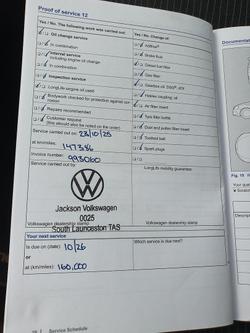 Proof of service 12
Yes / No: The following work was carried out:
Yes / No: Change of:
Oil change service
AdBlue®
In combination
Brake fluid
Interval service
including engine oil change
Diesel fuel filter
In combination
Gas filter
Inspection service
LongLife engine oil used
Haldex coupling oil
Bodywork checked for protection against corrosion
Air filter insert
Repairs recommended
Tyre filler bottle
Customer request
(this should also be noted on the order)
Dust and pollen filter insert
Toothed belt
Service carried out on: 23/10/25
Spark plugs
at km/miles: 147386
Invoice number: 993060
Service carried out by:
LongLife mobility guarantee:
Jackson Volkswagen
0025
South Launceston TAS
Volkswagen dealership stamp
Volkswagen dealership stamp
Your next service
Is due on (date): 10/26
Which service is due next?
or
at (km/miles): 160,000
Service Schedule